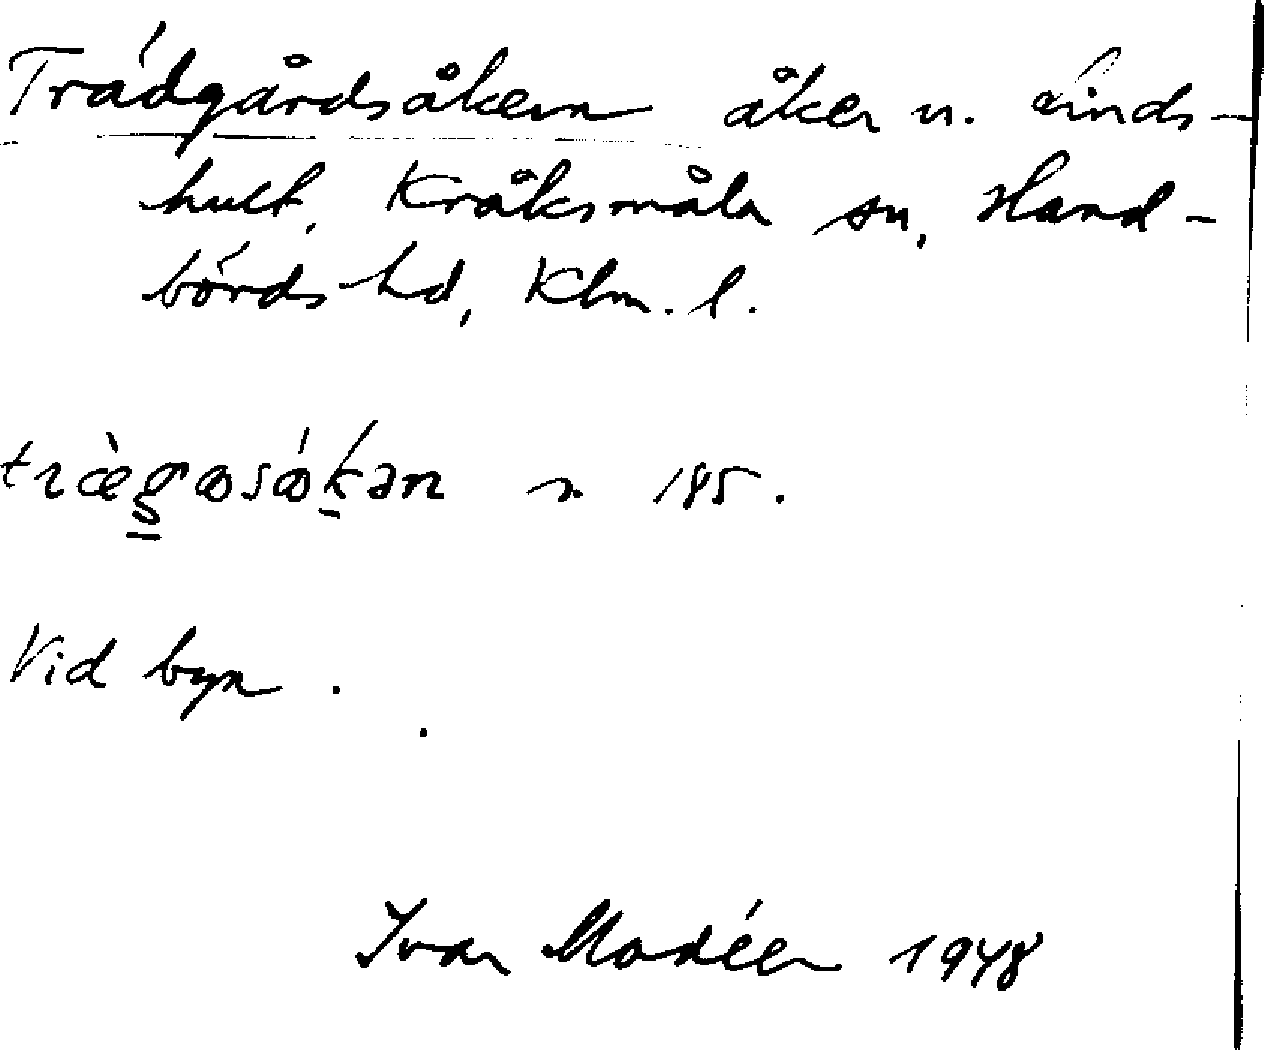 Trädgårdsåkern åker u. Linds-
hult, Kråksmåla sn, Hand-
börds hd, Klm. l.
træ̀gɷsɷ́kən n 185.
Vid byn.
Ivar Modéer 1948